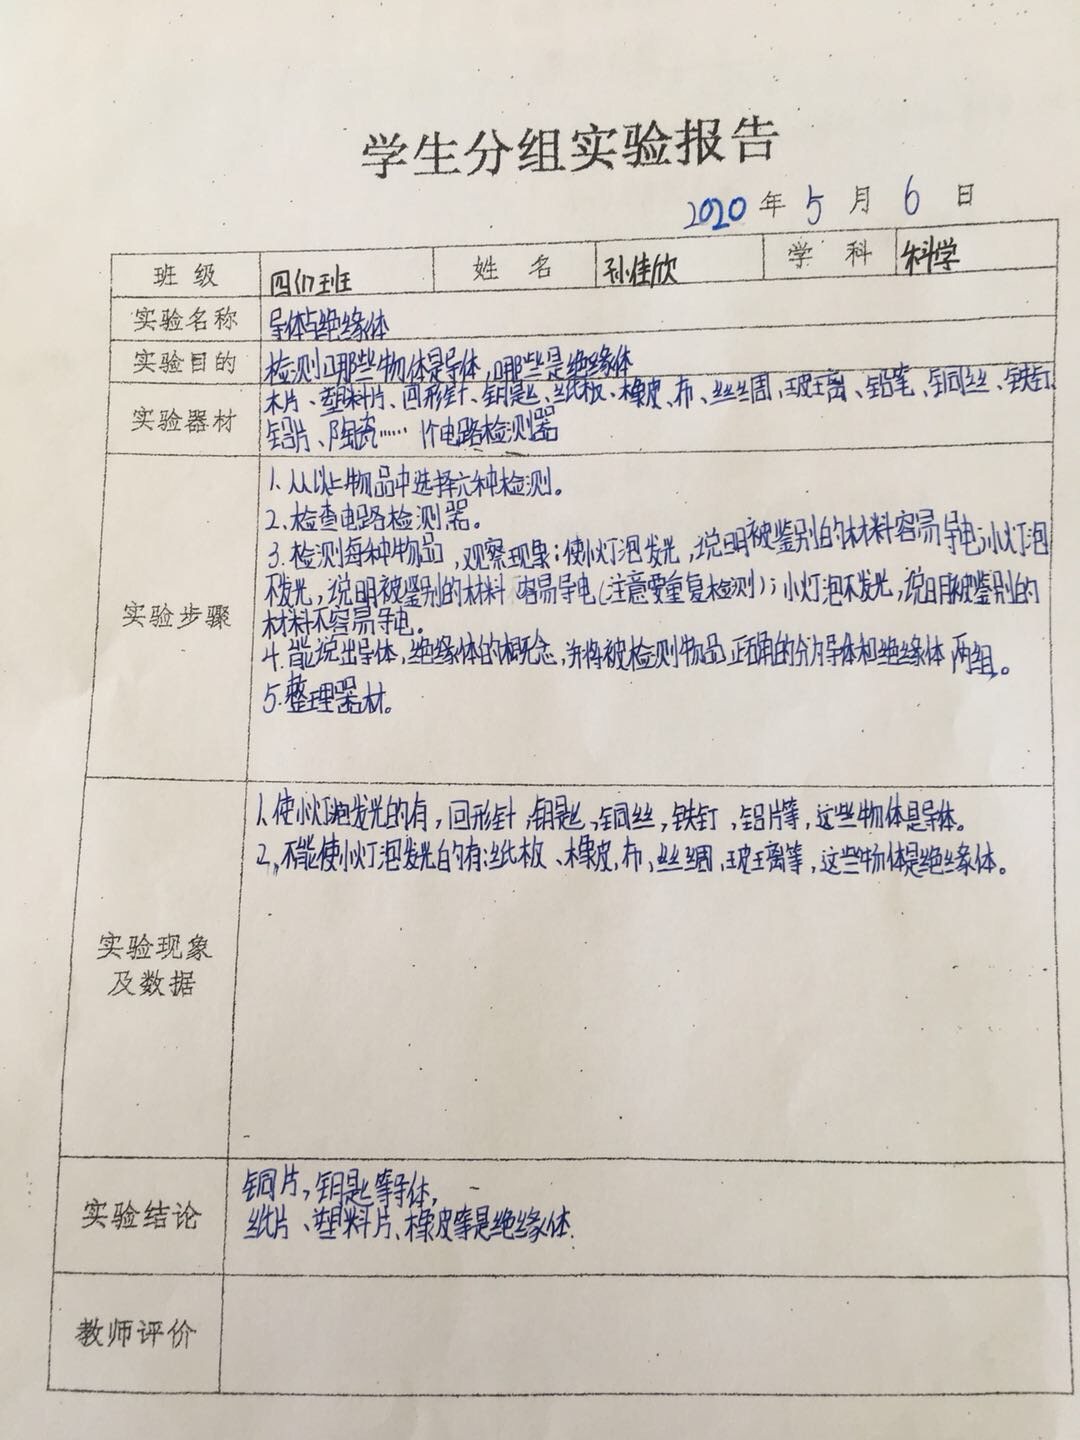 学生分组实验报告
2020年5月6日
班级 四(1)班 姓名 孙佳欣 学科 科学
实验名称 导体与绝缘体
实验目的 检测哪些物体是导体,哪些是绝缘体
实验器材 木片、塑料片、回形针、钥匙、纸板、橡皮、布、丝绸、玻璃、铅笔、铜丝、铁钉
铝片、陶瓷…… 1个电路检测器
实验步骤
1.从以上物品中选择六种检测。
2.检查电路检测器。
3.检测每种物品,观察现象:使小灯泡发光,说明被鉴别的材料容易导电;小灯泡
不发光,说明被鉴别的材料 容易导电(注意要重复检测);小灯泡不发光,说明被鉴别的
材料不容易导电。
4.能说出导体,绝缘体的概念,并将被检测物品正确的分为导体和绝缘体两组。
5.整理器材。
实验现象
及数据
1.使小灯泡发光的有,回形针,钥匙,铜丝,铁钉,铝片等,这些物体是导体。
2,不能使小灯泡发光的有:纸板、橡皮,布,丝绸,玻璃等,这些物体是绝缘体。
实验结论
铜片,钥匙等导体,
纸片、塑料片、橡皮等是绝缘体.
教师评价